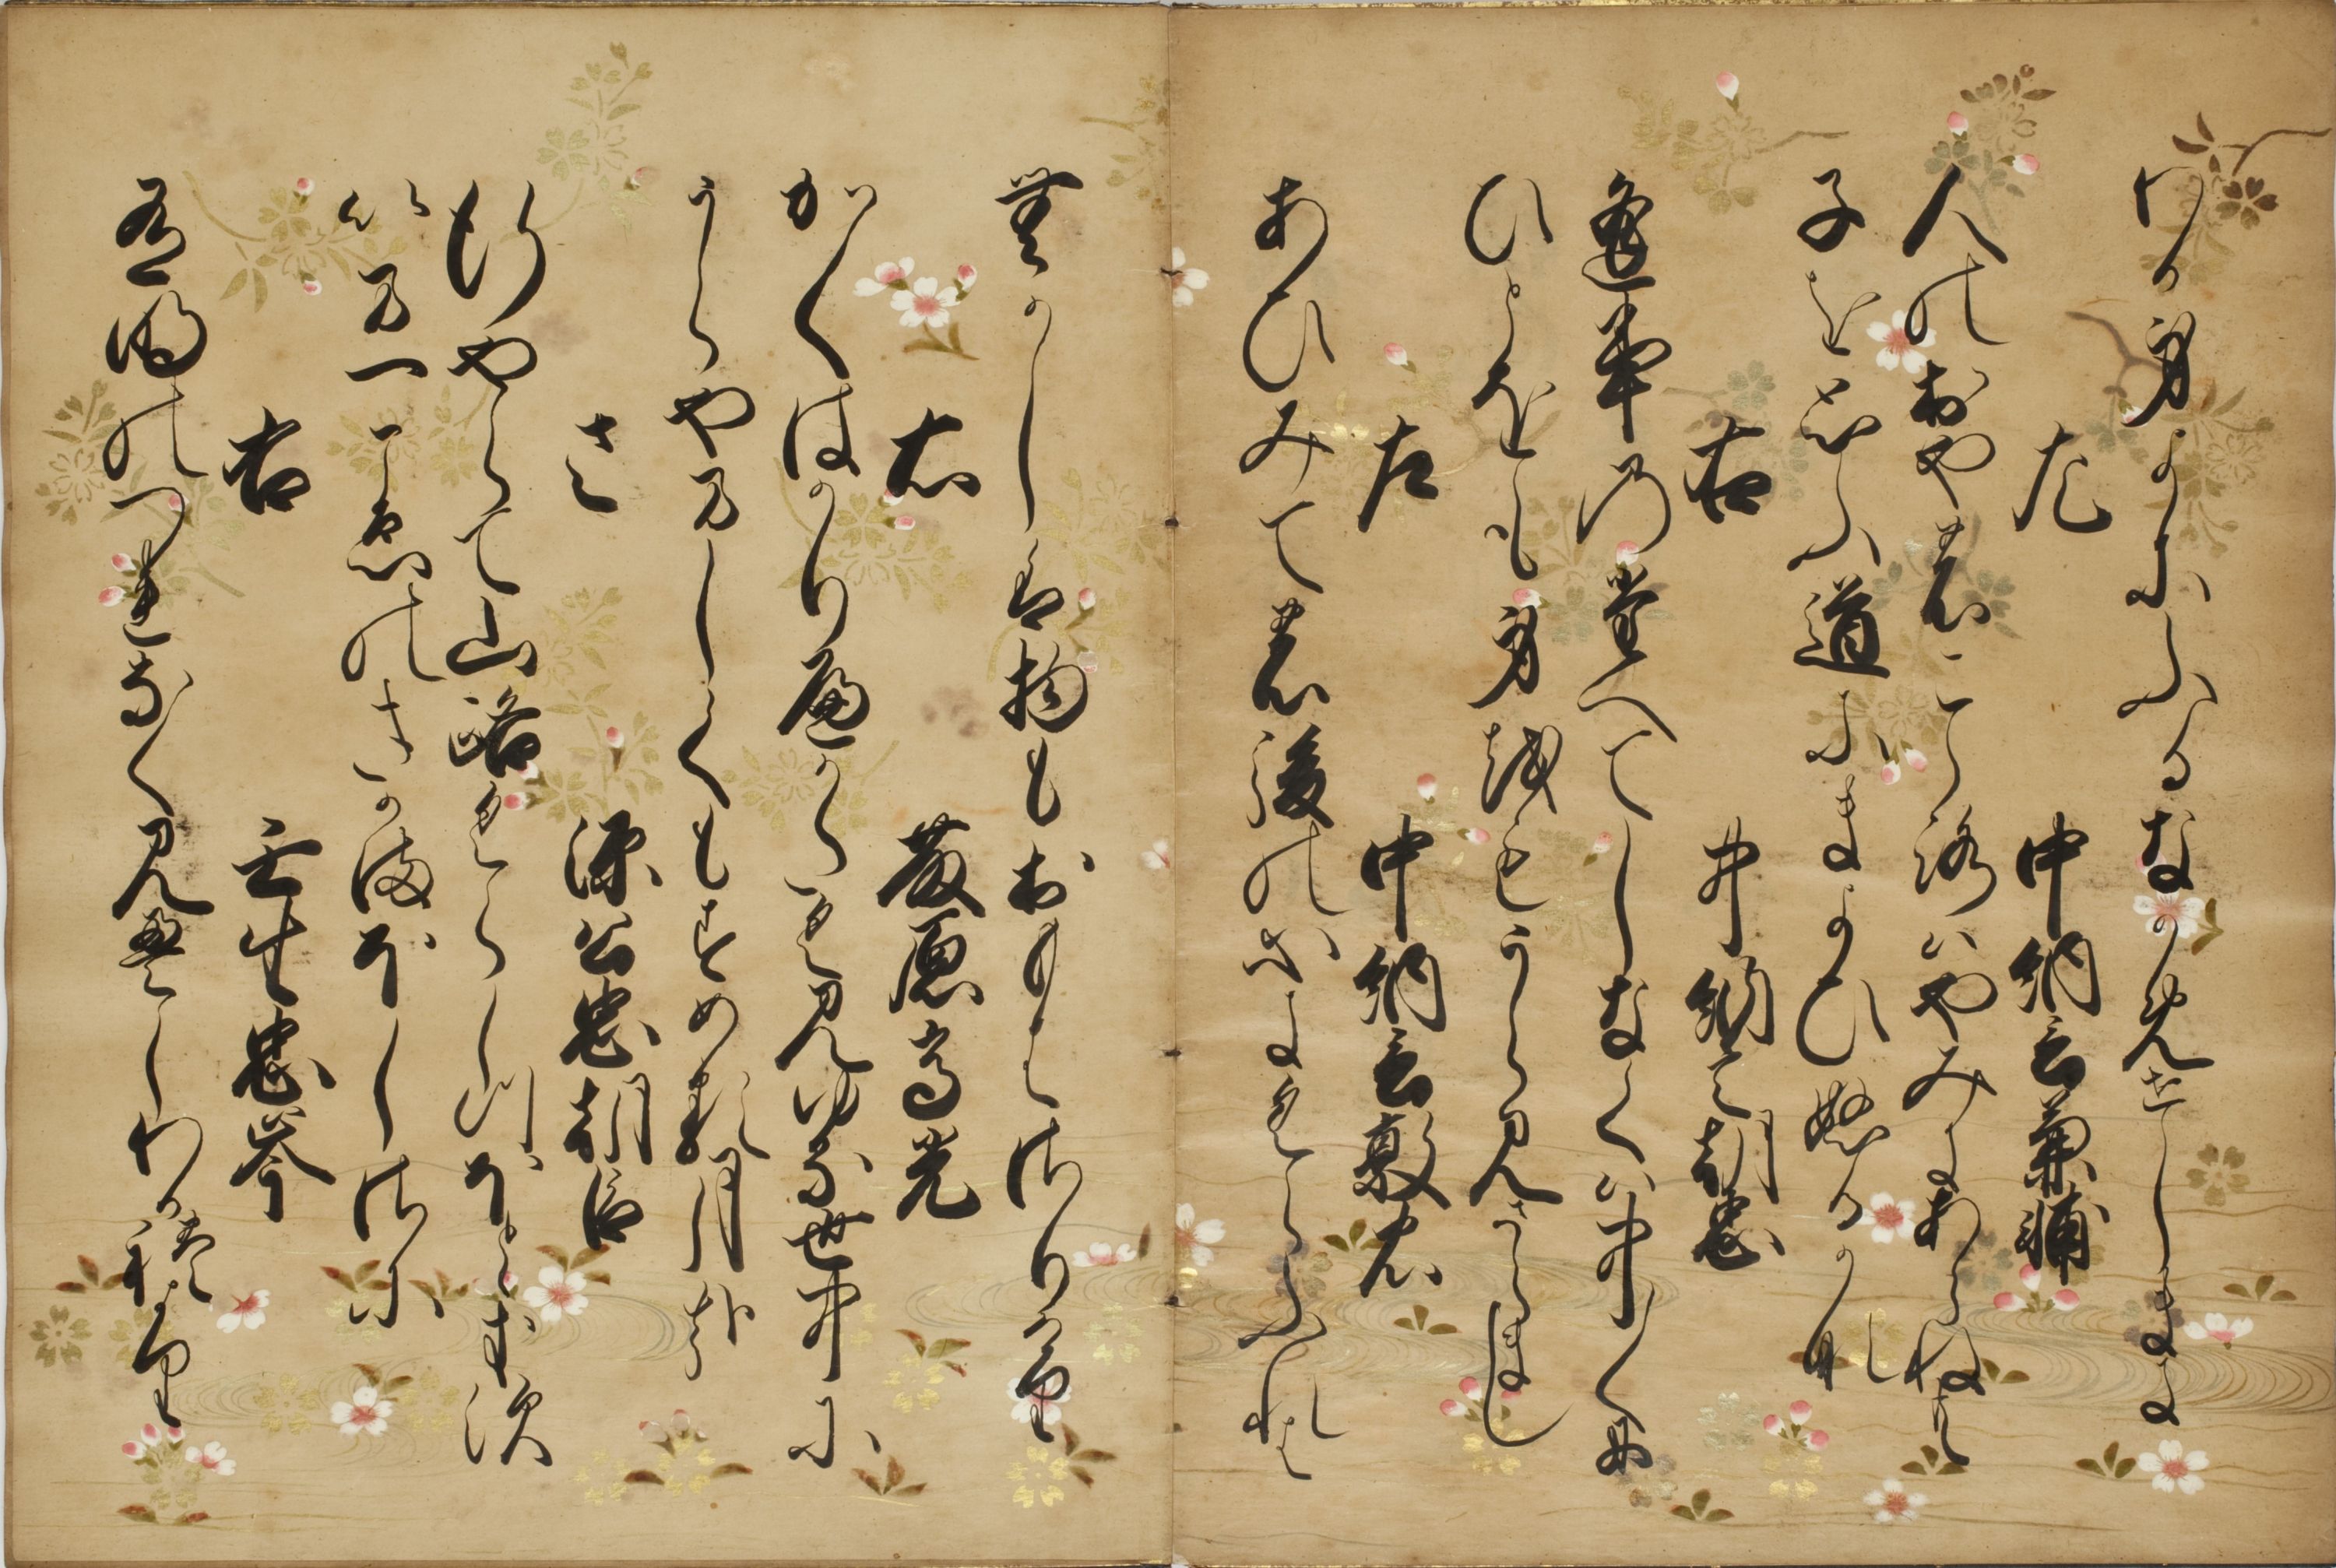 わか身よにふるなかめせしまに
左　中納言兼輔
人のおやのこゝろはやみにあらねとも
子をおもふ道にまよひぬるかな
右　中納言朝忠
逢事のたえてしなくは中々に
ひとをも身をもうらみさらまし
左　中納言敦忠
あひみての後の心にくらふれは
むかしは物もおもはさりけり
右　藤原高光
かくはかりへかたく見ゆる世中に
うらやましくもすめる月かな
左　源公忠朝臣
行やらて山路くらしつほとゝきす
いま一こゑのきかまほしさに
右　壬生忠岑
有明のつれなく見えしわかれより